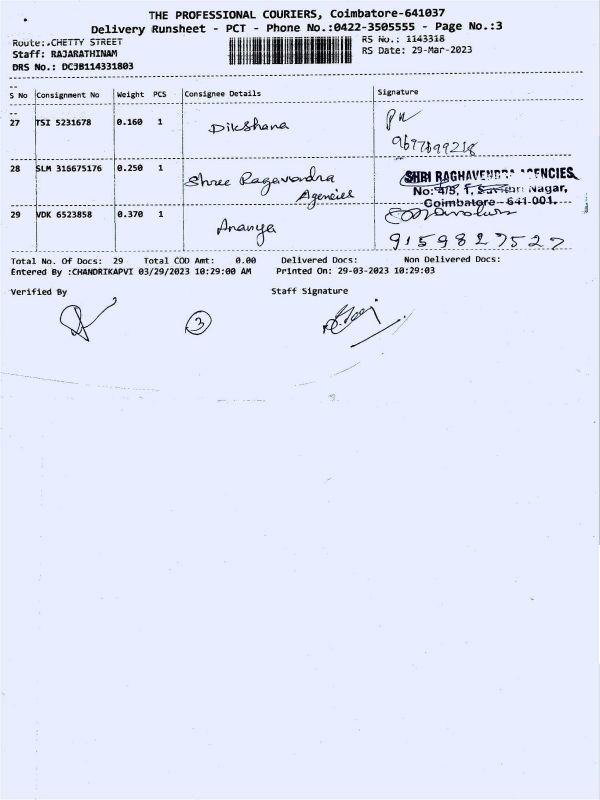 THE PROFESSIONAL COURIERS, Coimbatore-641037
Delivery Runsheet - PCT - Phone No.:0422-3505555 - Page No.:3
Route: CHETTY STREET
RS No.: 1143318
Staff: RAJARATHINAM
RS Date: 29-Mar-2023
DRS No.: DC3B114331803
S No Consignment No Weight PCS Consignee Details Signature
27 TSI 5231678 0.160 1 Dikshana
28 SLM 316675176 0.250 1 Shree Ragavandra
Agencies
SHRI RAGHAVENDRA AGENCIES
No: 4/5, 1, Savithri Nagar,
Coimbatore - 641-001.
29 VDK 6523858 0.370 1 Ananya
9159827527
Total No. Of Docs: 29 Total COD Amt: 0.00 Delivered Docs: Non Delivered Docs:
Entered By :CHANDRIKAPVI 03/29/2023 10:29:00 AM Printed On: 29-03-2023 10:29:03
Verified By Staff Signature
3